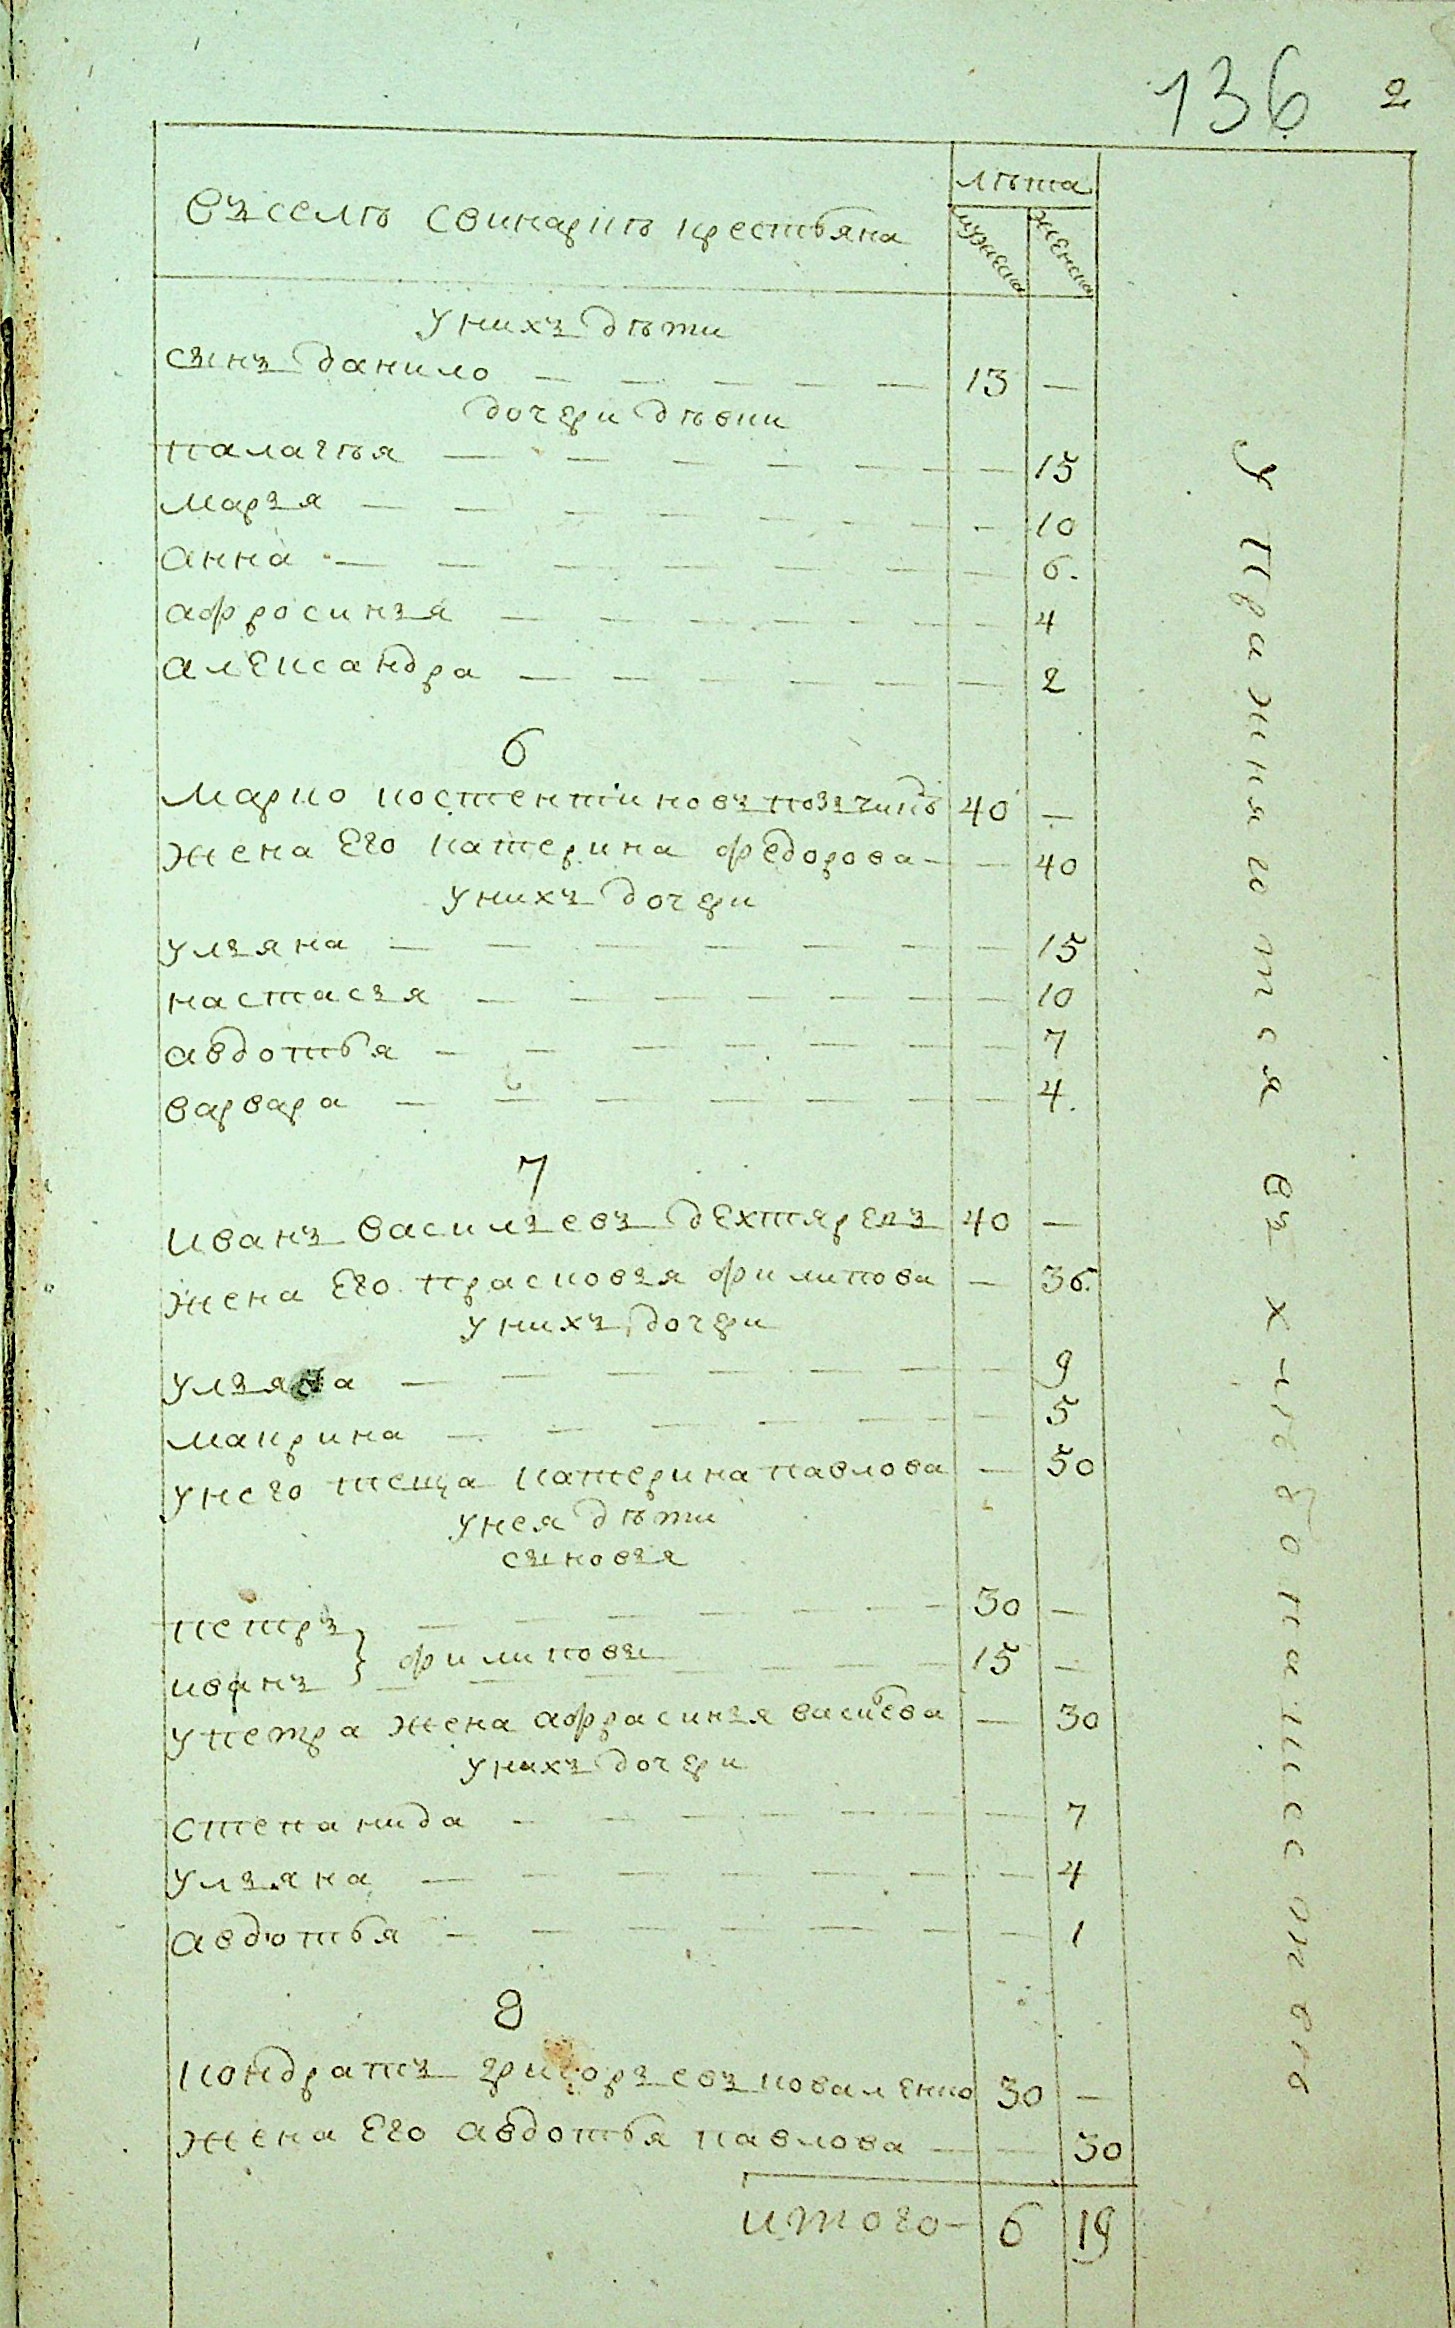 136 2
въселѣ свинарпѣ крестьяна
лѣта
мужеска
женска
унихъ дѣти
сынъ данило — — — — — 13 —
дочери дѣвки
палагѣя — — — — — — 15
маръя — — — — — — — 10
анна — — — — — — — 6.
афросинъя — — — — — — — 4
александра — — — — — — 2
6
марко костентиновъ 40 —
жена его катерина федорова — — 40
унихъ дочери
улъяна — — — — — — — 15
настасъя — — — — — — — 10
авдотья — — — — — — — 7
варвара — — — — — — — 4.
7
иванъ василъевъ дехтяревъ 40 —
жена его прасковъя филипова — 36.
унихъ дочери
улъяна — — — — — — — 9
макрина — — — — — — 5
унего теща катерина павлова — 50
унея дѣти
сыновъя
петръ — — — — — — 30 —
иванъ } филиповы — — — 15 —
упетра жена афрасинъя васиева — 30
унихъ дочери
степанида — — — — — — 7
улъяна — — — — — — — 4
авдотья — — — — — — — 1
8
кондратъ григоръевъ коваленко 30 —
жена его авдотья павлова — — 30
итого — 6 19
упражняются въ хлѣбопашественѣ